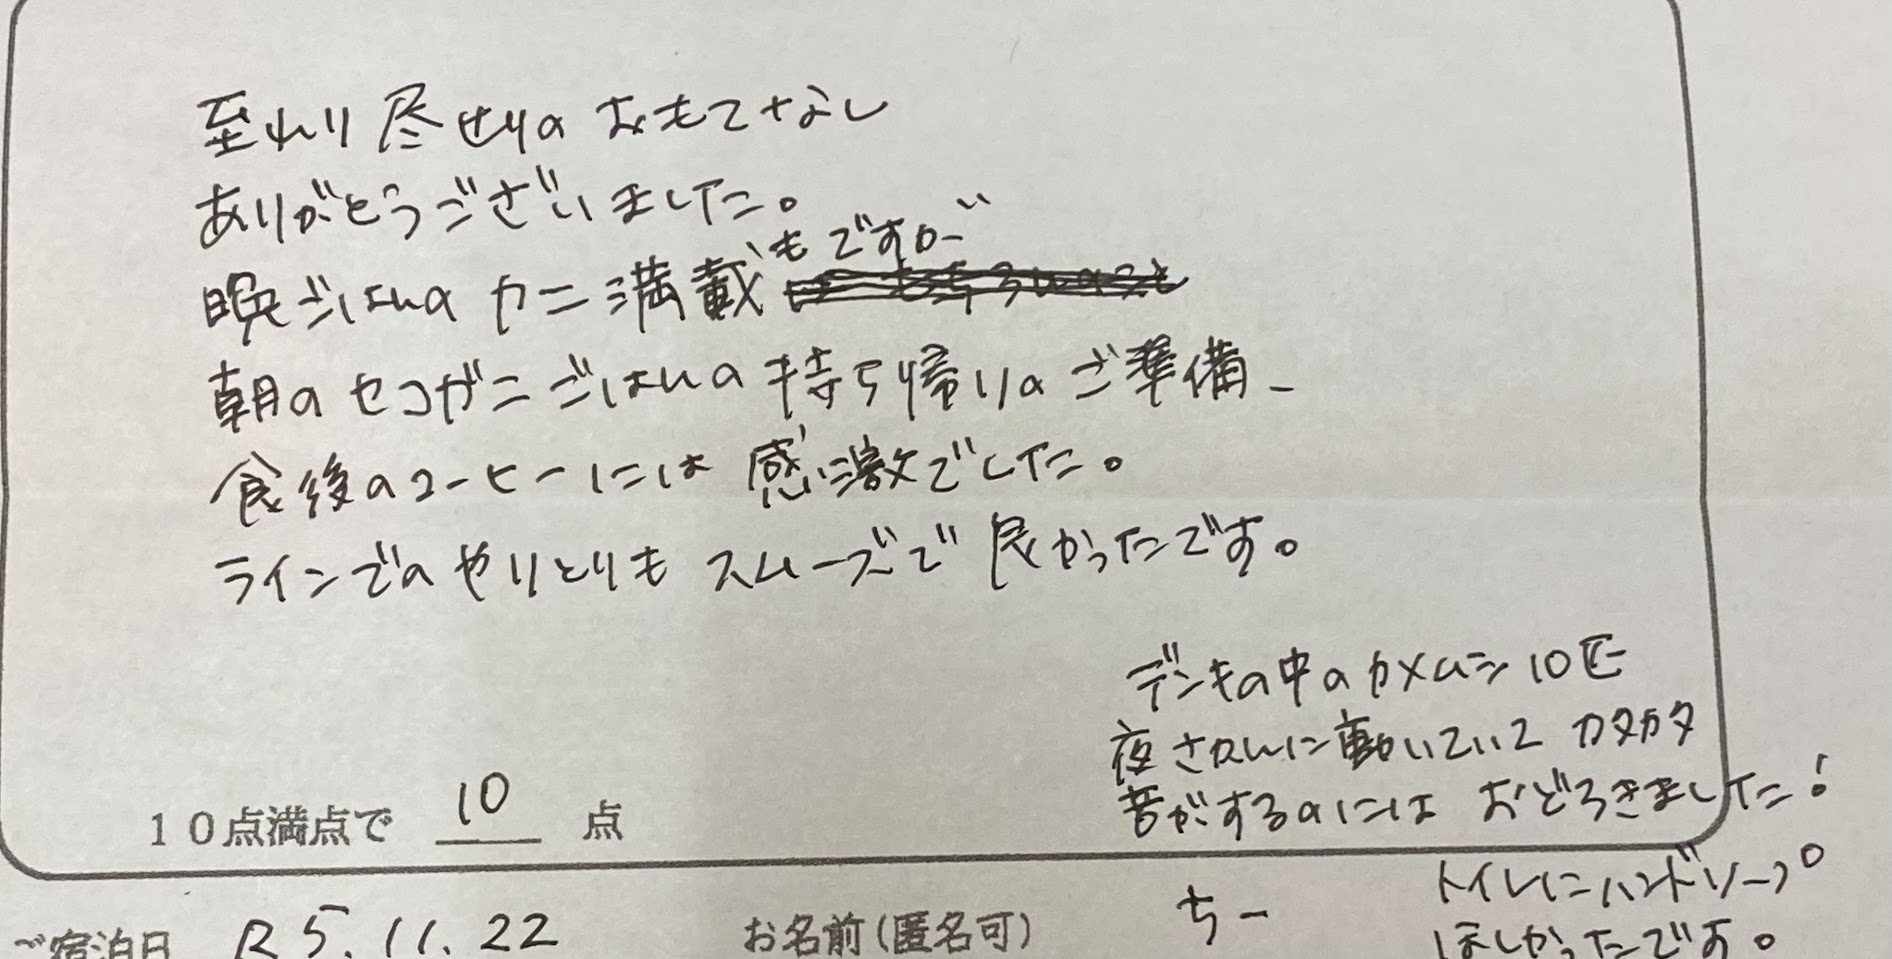 至れり尽せりのおもてなし
ありがとうございました。
晩ごはんのカニ満載もですが
朝のセコガニごはんの持ち帰りのご準備、
食後のコーヒーには感激でした。
ラインでのやりとりもスムーズで良かったです。
デンキの中のカメムシ10匹
夜さかんに動いていてカタカタ
音がするのにはおどろきました!
10点満点で 10 点
トイレにハンドソープ
ほしかったです。
ご宿泊日 R5.11.22 お名前(匿名可) ちー